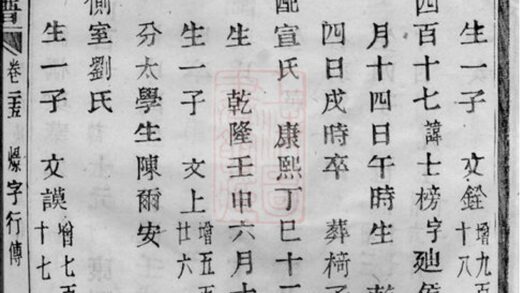 生一子 文銓 增九百 十八
四百十七 諱士榜 字廸
月十四日午時生 乾
四日戌時卒 葬椅子
配宣氏 康熙丁巳十二
生 乾隆壬申六月十
生一子 文上 增五 廿六
太學生陳爾安
側室劉氏
生一子 文謨 增七 十七
卷二五 字行傳